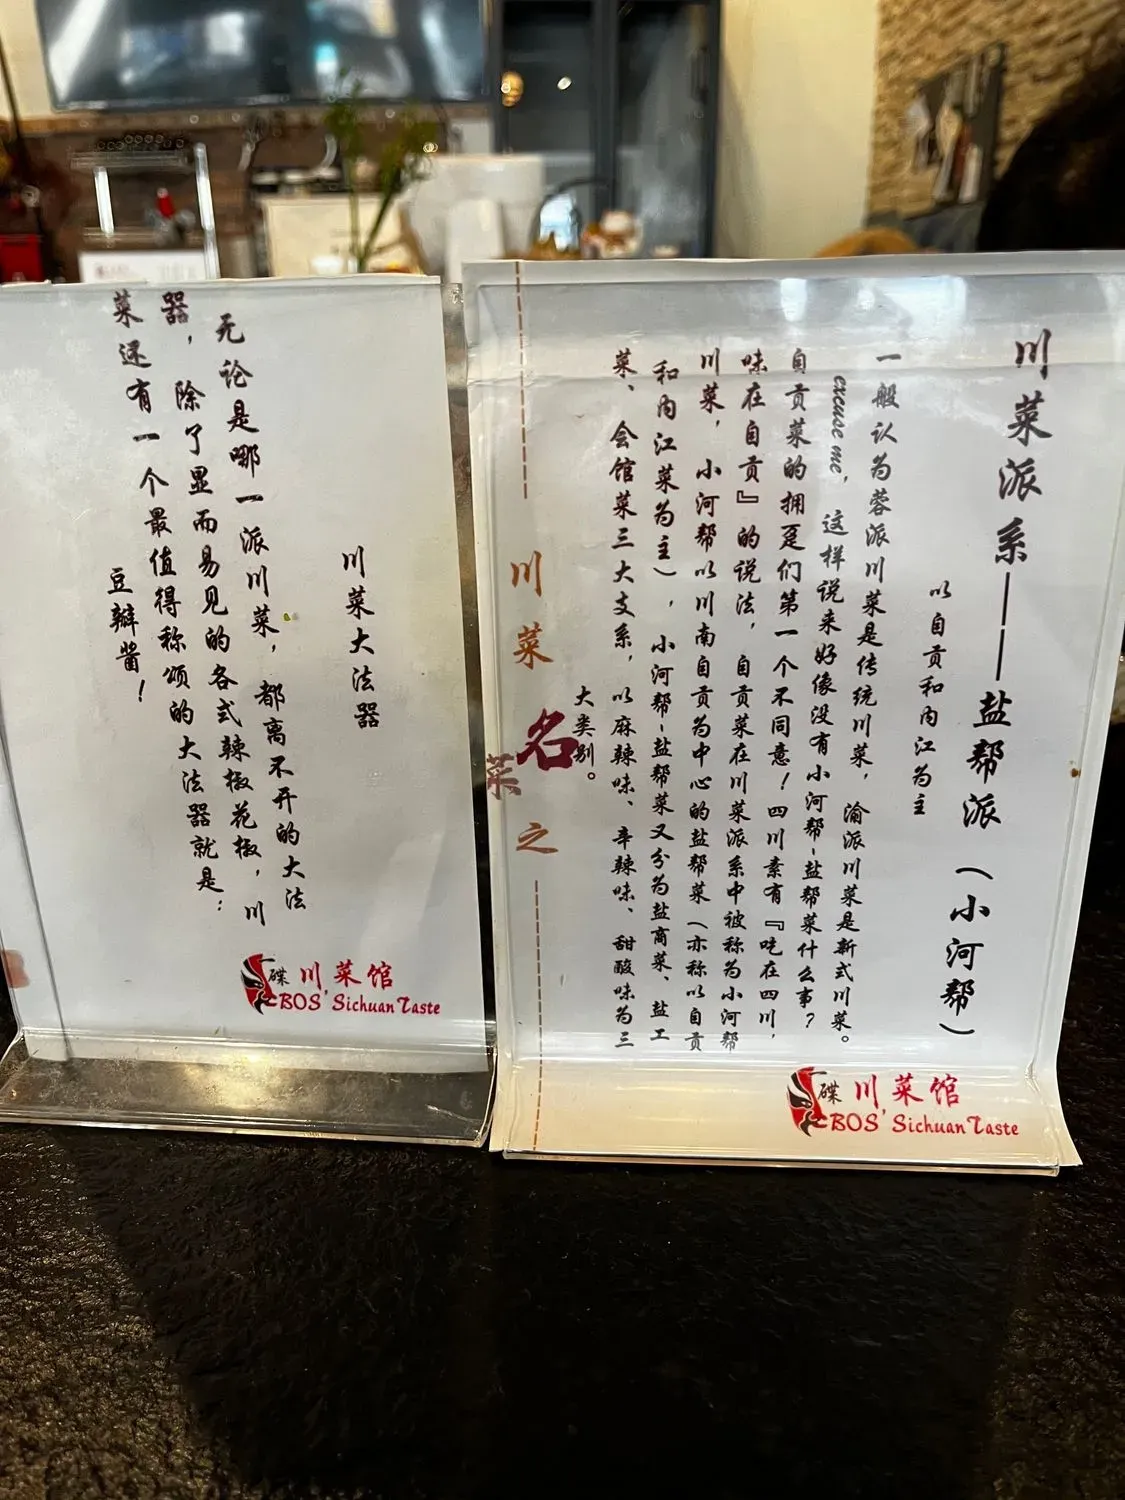 川菜大法器
无论是哪一派川菜，都离不开的大法
器，除了显而易见的各式辣椒花椒，川
菜还有一个最值得称颂的大法器就是：
豆瓣酱！
碟 川菜馆
BOS' Sichuan Taste
川菜派系——盐帮派（小河帮）
以自贡和内江为主
一般认为蓉派川菜是传统川菜，渝派川菜是新式川菜。
excuse me，这样说来好像没有小河帮-盐帮菜什么事？
自贡菜的拥趸们第一个不同意！四川素有『吃在四川，
味在自贡』的说法，自贡菜在川菜派系中被称为小河帮
川菜，小河帮以川南自贡为中心的盐帮菜（亦称以自贡
和内江菜为主），小河帮-盐帮菜又分为盐商菜、盐工
菜、会馆菜三大支系，以麻辣味、辛辣味、甜酸味为三
大类别。
川菜之
名菜
碟 川菜馆
BOS' Sichuan Taste